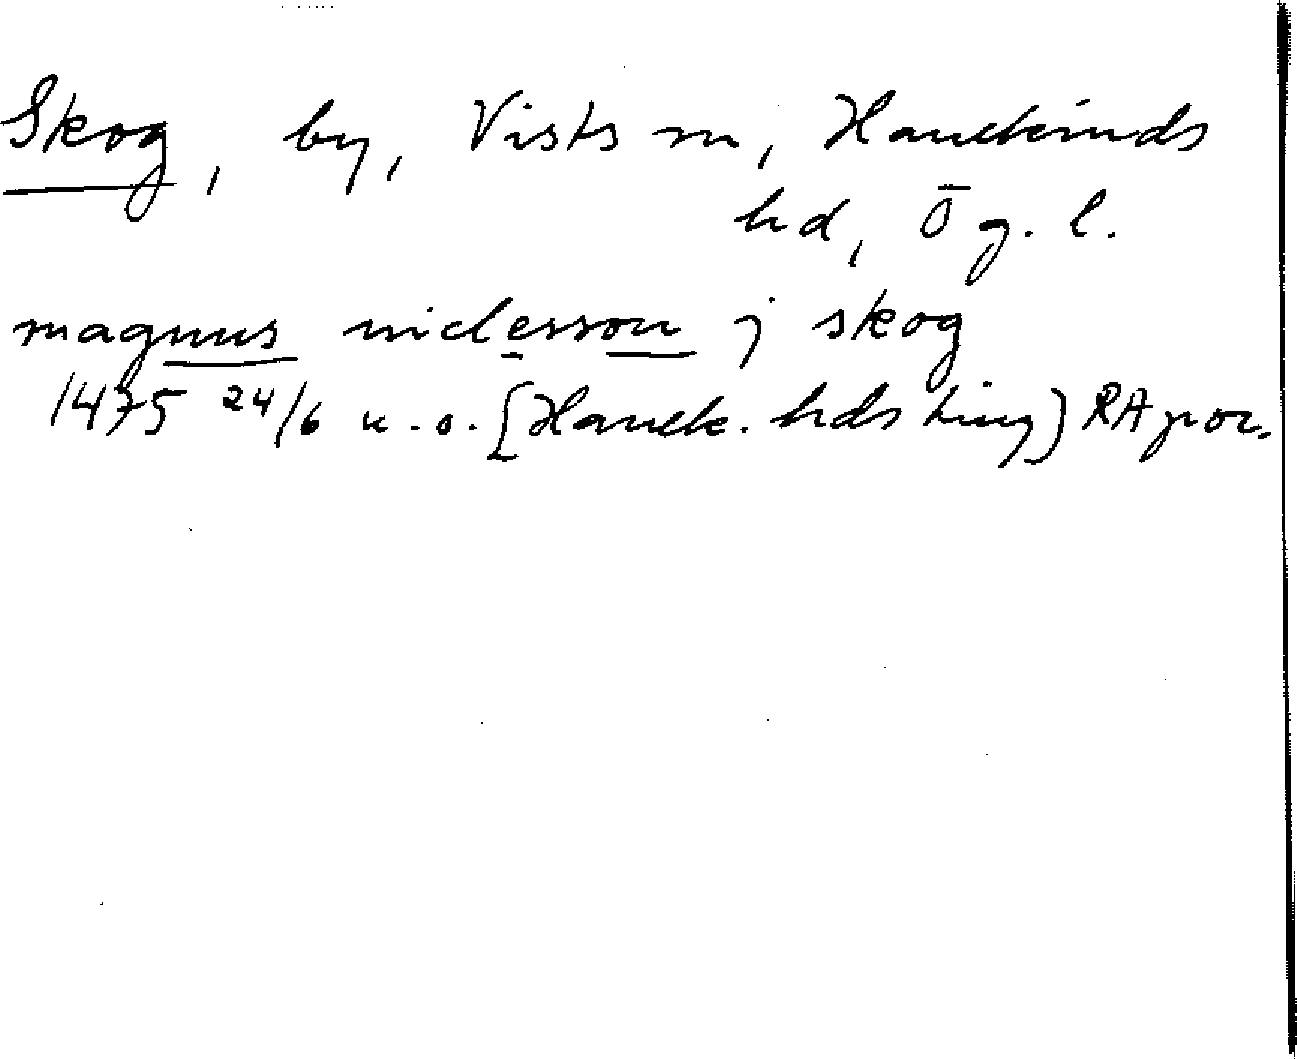 Skog, by, Vists sn, Hanekinds
hd, Ög. l.
magnus niclesson j skog
1475 24/6 u. o. [Hanek. hds ting] RA por.